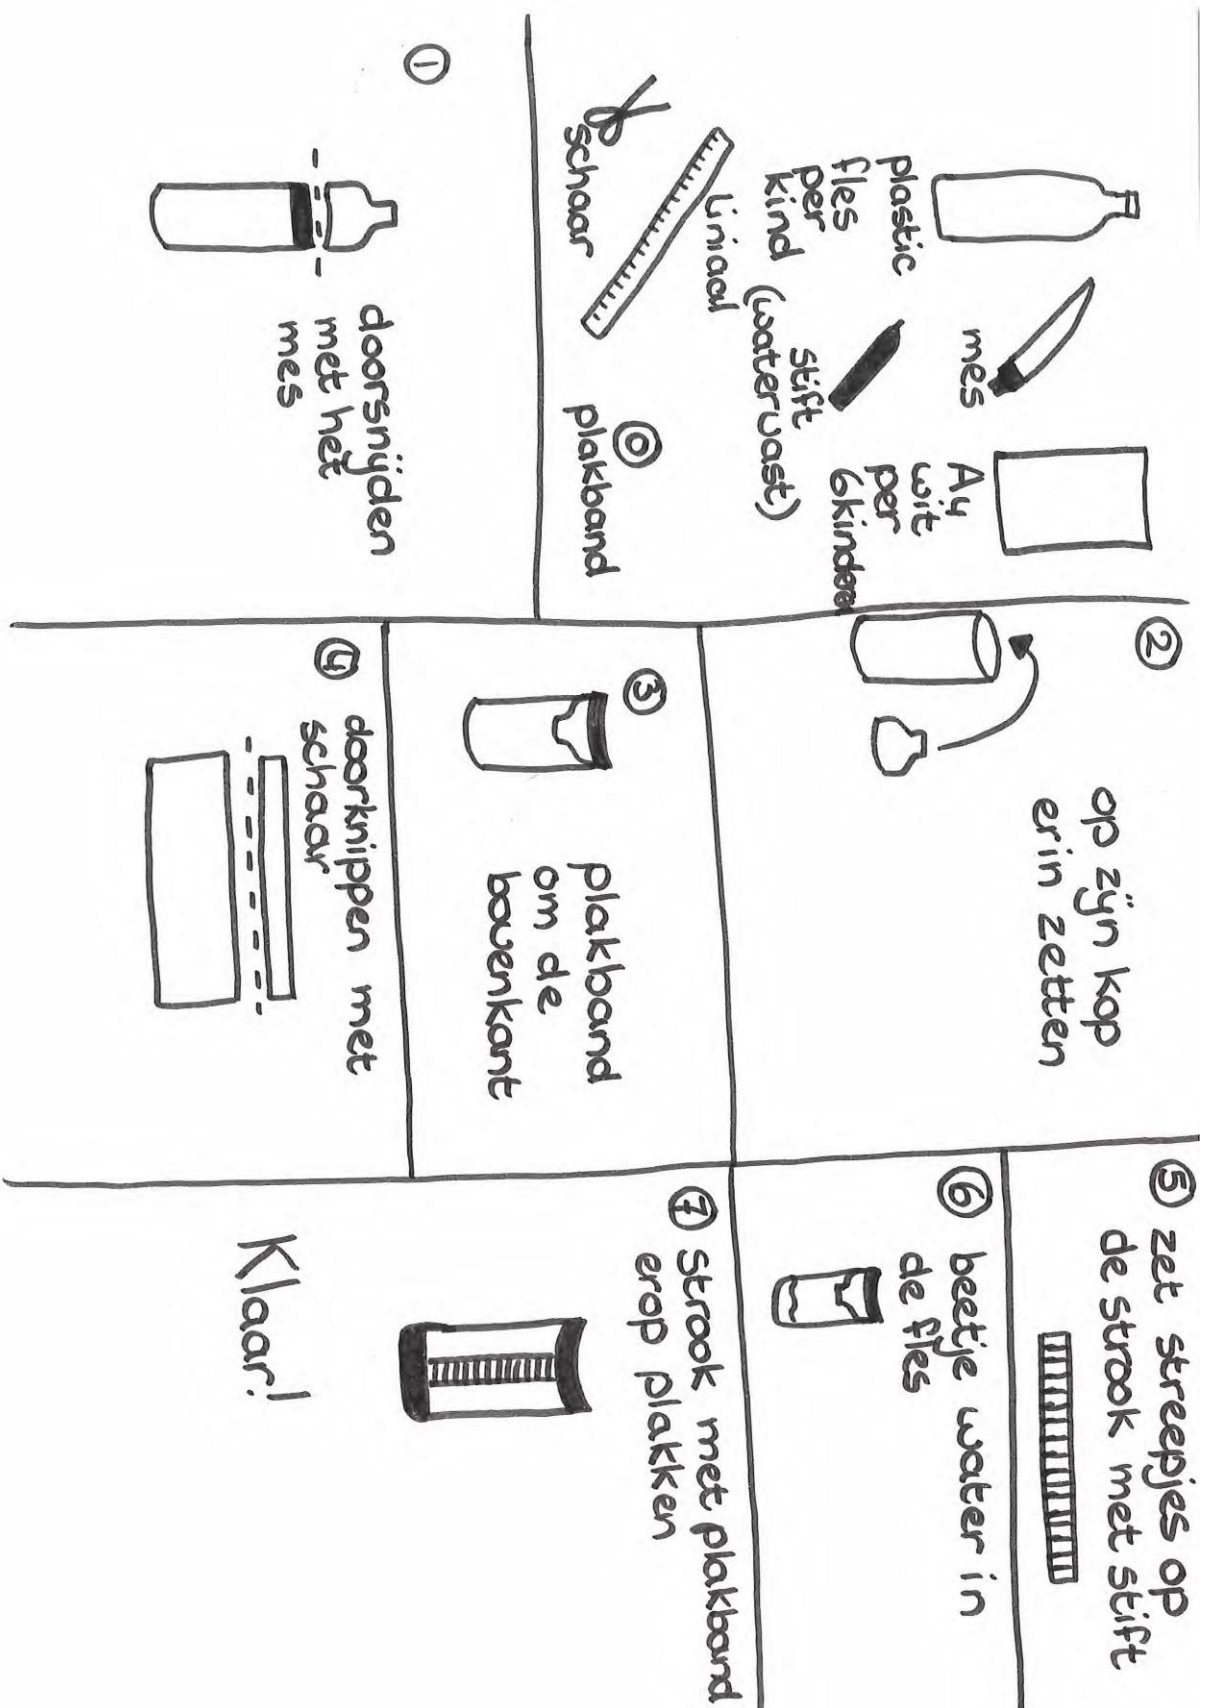 plastic
fles
per
kind
mes
A4
wit
per
6 kinderen
stift
(watervast)
Liniaal
schaar
plakband
①
doorsnijden
met het
mes
②
op zijn kop
erin zetten
③
plakband
om de
bovenkant
④ doorknippen met
schaar
⑤ zet streepjes op
de strook met stift
⑥ beetje water in
de fles
⑦ strook met plakband
erop plakken
Klaar!